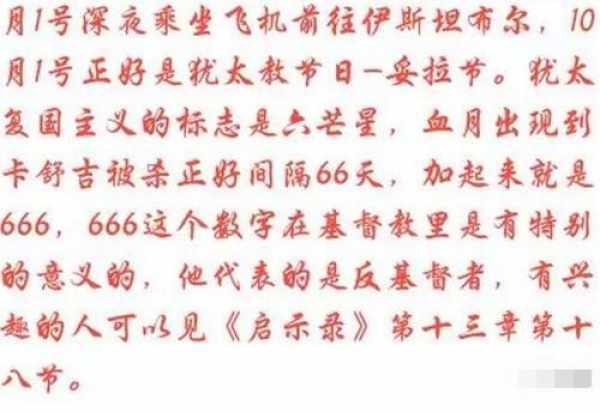 月1号深夜乘坐飞机前往伊斯坦布尔，10
月1号正好是犹太教节日-妥拉节。犹太
复国主义的标志是六芒星，血月出现到
卡舒吉被杀正好间隔66天，加起来就是
666，666这个数字在基督教里是有特别
的意义的，他代表的是反基督者，有兴
趣的人可以见《启示录》第十三章第十
八节。